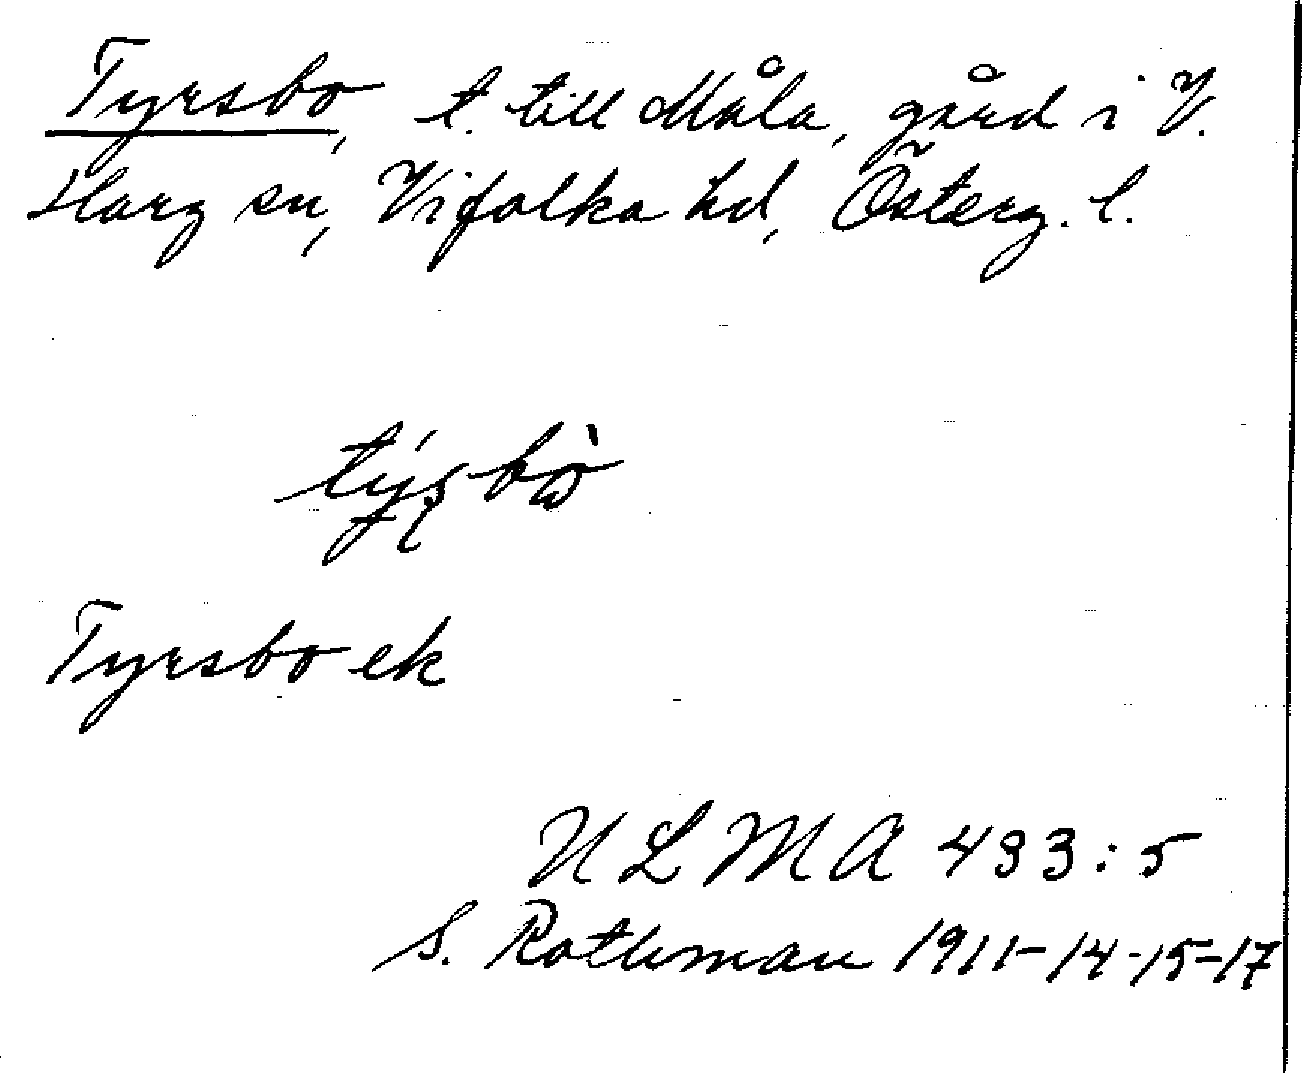 Tyrsbo, t. till Måla, gård i V.
Harg sn, Vifolka hd, Österg. l.
Tyrsbo ek
ULMA 493:5
S. Rothman 1911-14-15-17